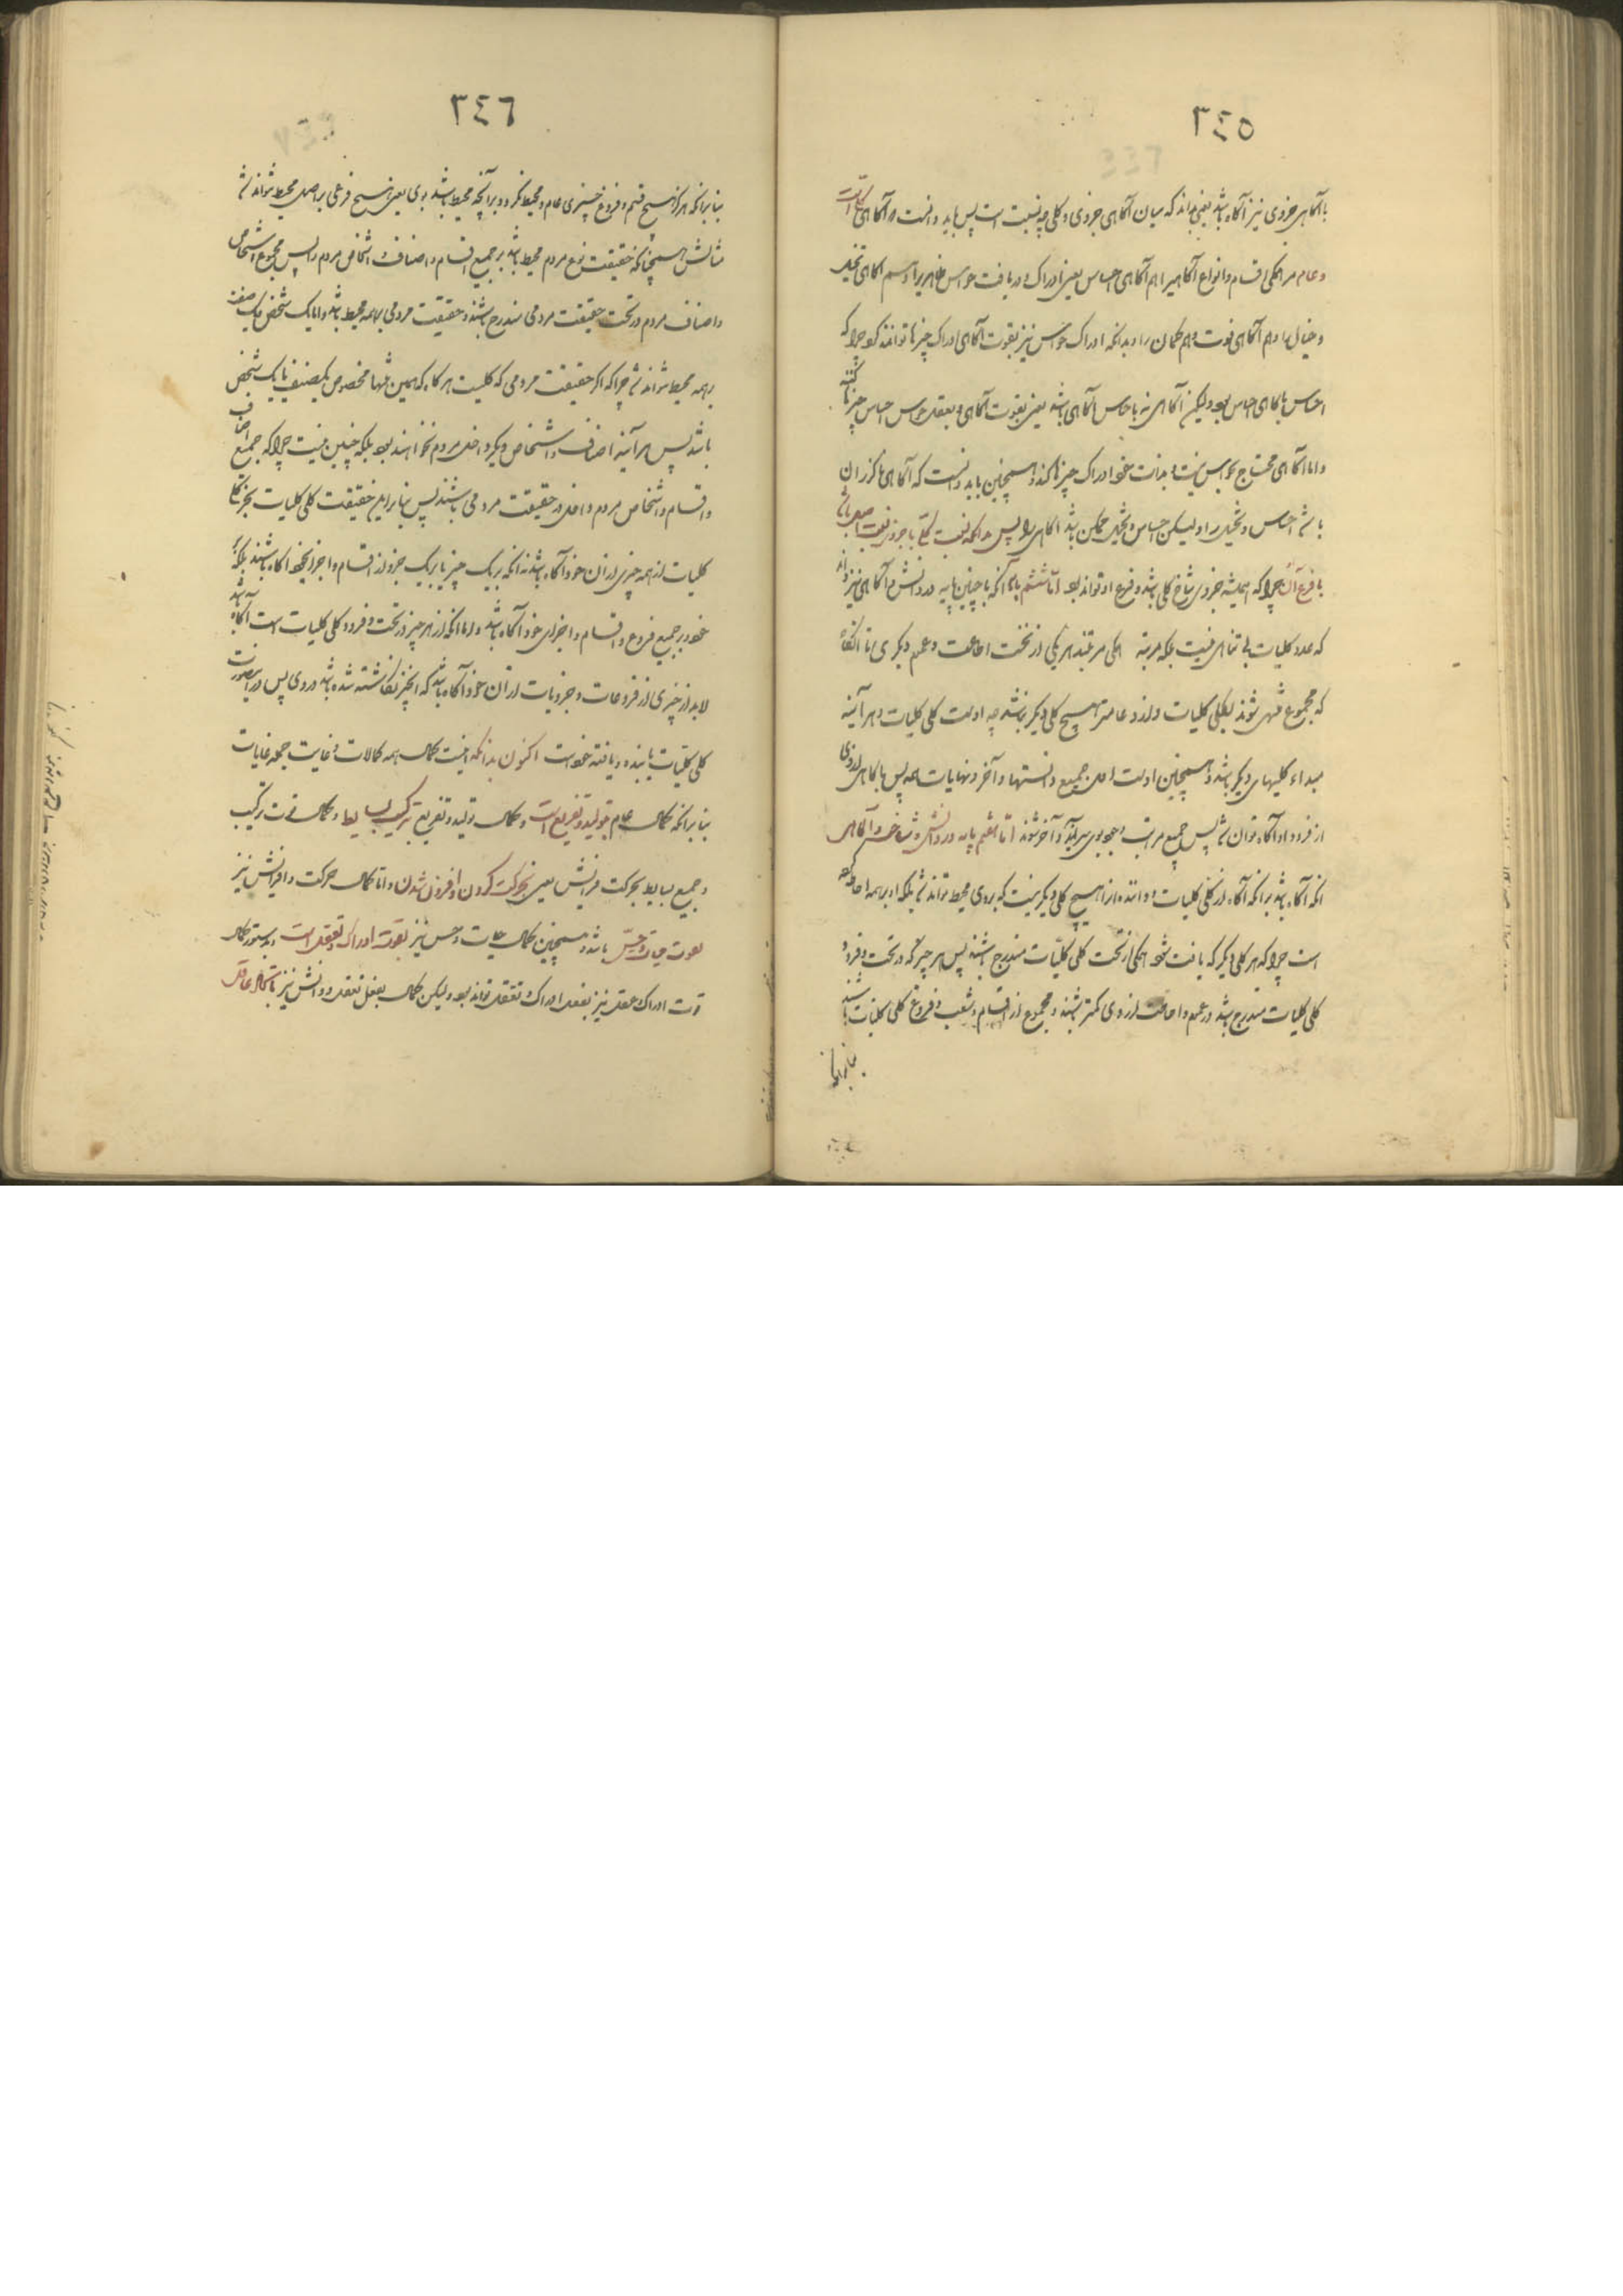 ٣٤٥
با آگاهی جزوی نیز آگاه باشد یعنی بداند که میان آگاهی جزوی و کلی چه نسبت است پس باید دانست آگاهی
و عام مر همگی اقسام و انواع آگاهی را هم آگاهی احساس یعنی ادراک و دریافت حواس ظاهر را و هم آگاهی تخیل
و خیال را و هم آگاهی قوت وهم و گمان را و بدانکه ادراک حواس نیز بقوت آگاهی ادراک چیزها توانند کرد چرا که
احساس با آگاهی احساس بود ولیکن آگاهی نه با حواس آگاهی باشد یعنی بقوت آگاهی و بعقل حواس احساس چیزها کنند
و اما آگاهی محتاج بحواس نیست و بذات خود ادراک چیزها کند و همچنین باید دانست که آگاهی
با احساس و تخیل ولیکن احساس و تخیل ممکن باشد آگاهی را پس بدانکه نسبت کلی با جزوی نسبت اصل باشد
با فرع آن چرا که همیشه جزوی شاخ کلی باشد و فرع او تواند بود اما ششم پایه آنکه با چنین پایه در دانش و آگاهی نیز داند
که عدد کلیات بی تناهی نیست بلکه مرتبه همگی مرتبند هر یکی در تحت احاطت و عموم دیگری تا آنگاه
که مجموع منتهی شوند بکلی کلیات و از او عامتر هیچ کلی دیگر نباشد چه اوست کلی کلیات و هر آینه
مبداء کلیهای دیگر باشد و همچنین اوست اصل جمیع دانستها و آخر و نهایات همه پس با آگاهی
از فرود او آگاه توان شد پس جمیع مراتب وجود بوی سرآیند و آخر شوند اما هفتم پایه در دانش و شناخت و آگاهی
آنکه آگاه باشد برآنکه آگاه از کلی کلیات و داننده او را هیچ کلی دیگر نیست که بر وی محیط تواند شد بلکه او بر همه احاطه کرده
است چرا که هر کلی دیگر که یافت شود همگی در تحت کلی کلیات مندرج باشند پس هر چیز که در تحت و فرود
کلی کلیات مندرج باشد در عموم و احاطت از وی کمتر باشند و مجموع از اقسام و شعب و فروع کلی کلیات باشند
بنابرآنکه
٣٤٦
بنابرآنکه هرگز هیچ قسم و فروع چیزی عام و محیط نگردد بر آنچه محیط باشد بوی یعنی هیچ فرعی بر اصل محیط نتواند شد
مثالش همچنانکه حقیقت نوع مردم محیط باشد بر جمیع اقسام و اصناف و اشخاص مردم را پس مجموع اشخاص
و اصناف مردم در تحت حقیقت مردمی مندرج باشند و حقیقت مردمی بر همه محیط باشد و اما یک شخص یا یک صنف
بر همه محیط نتواند شد چرا که اگر حقیقت مردمی که کلیست هرگاه که همین تنها مخصوص بیکصنف یا یک شخص
باشد پس هر آینه اصناف و اشخاص دیگر داخل مردم نخواهند بود بلکه چنین نیست چرا که جمیع اصناف
و اقسام و اشخاص مردم داخل در حقیقت مردمی باشند پس بنابراین حقیقت کلی کلیات
کلیات از همه چیزی از آن خود آگاه باشد نه آنکه بر یک چیز یا بر یک جزو از اقسام و اجزای خود آگاه باشند بلکه
خود بر جمیع فروع و اقسام و اجزای خود آگاه باشد و اما آنکه از هر چیز در تحت و فرود کلی کلیات است آگاه باشد
لابد از چیزی از فروعات و جزویات از آن خود آگاه باشد که آنچیز نگاشته شده باشد در وی پس در اینصورت
کلی کلیات یابنده و یافته خود است اکنون بدانکه اینست کمال همه کمالات و غایت جمله غایات
بنابرآنکه کمال عام بتولید و تفریع است و کمال تولید و تفریع بترکیب بسایط و کمال قوت ترکیب
و جمیع بسایط بحرکت فزایش یعنی بحرکت کردن و افزون شدن و اما کمال حرکت و افزایش نیز
بقوت حیات و حس باشد و همچنین کمال حیات و حس نیز بقوت ادراک و تعقل است و بدستور کمال
قوت ادراک عقل نیز بفعل ادراک و تعقل تواند بود ولیکن کمال بفعل تعقل و دانش نیز